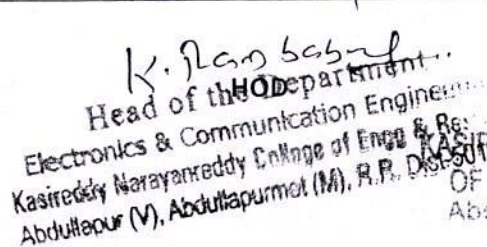 K. Rambabu
Head of the Department
HOD
Electronics & Communication Engineer
Kasireddy Narayanreddy College of Engg & Res
Abdullapur (V), Abdullapurmet (M), R.R. Dist-501
KASIR
OF
Abd